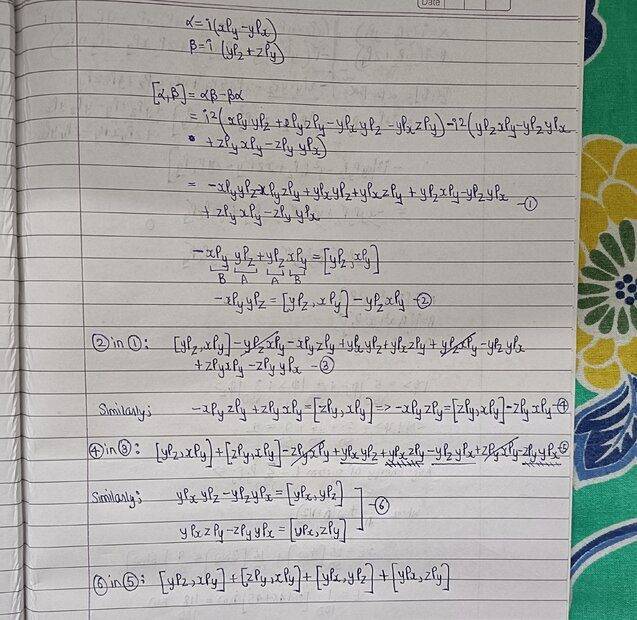 Date
α = i(xPy - yPx)
β = i (yPz + zPy)
[α, β] = αβ - βα
= i2(xPy yPz + xPy zPy - yPx yPz - yPx zPy) - i2(yPz xPy - yPz yPx
+ zPy xPy - zPy yPx)
= -xPy yPz - xPy zPy + yPx yPz + yPx zPy + yPz xPy - yPz yPx - ①
+ zPy xPy - zPy yPx
-xPy yPz + yPz xPy = [yPz, xPy]
B A A B
-xPy yPz = [yPz, xPy] - yPz xPy - ②
② in ①: [yPz, xPy] - yPz xPy - xPy zPy + yPx yPz + yPx zPy + yPz xPy - yPz yPx
+ zPy xPy - zPy yPx - ③
Similarly; -xPy zPy + zPy xPy = [zPy, xPy] => -xPy zPy = [zPy, xPy] - zPy xPy - ④
④ in ③: [yPz, xPy] + [zPy, xPy] - zPy xPy + yPx yPz + yPx zPy - yPz yPx + zPy xPy - zPy yPx - ⑤
Similarly; yPx yPz - yPz yPx = [yPx, yPz]
- ⑥
yPx zPy - zPy yPx = [yPx, zPy]
⑥ in ⑤: [yPz, xPy] + [zPy, xPy] + [yPx, yPz] + [yPx, zPy]